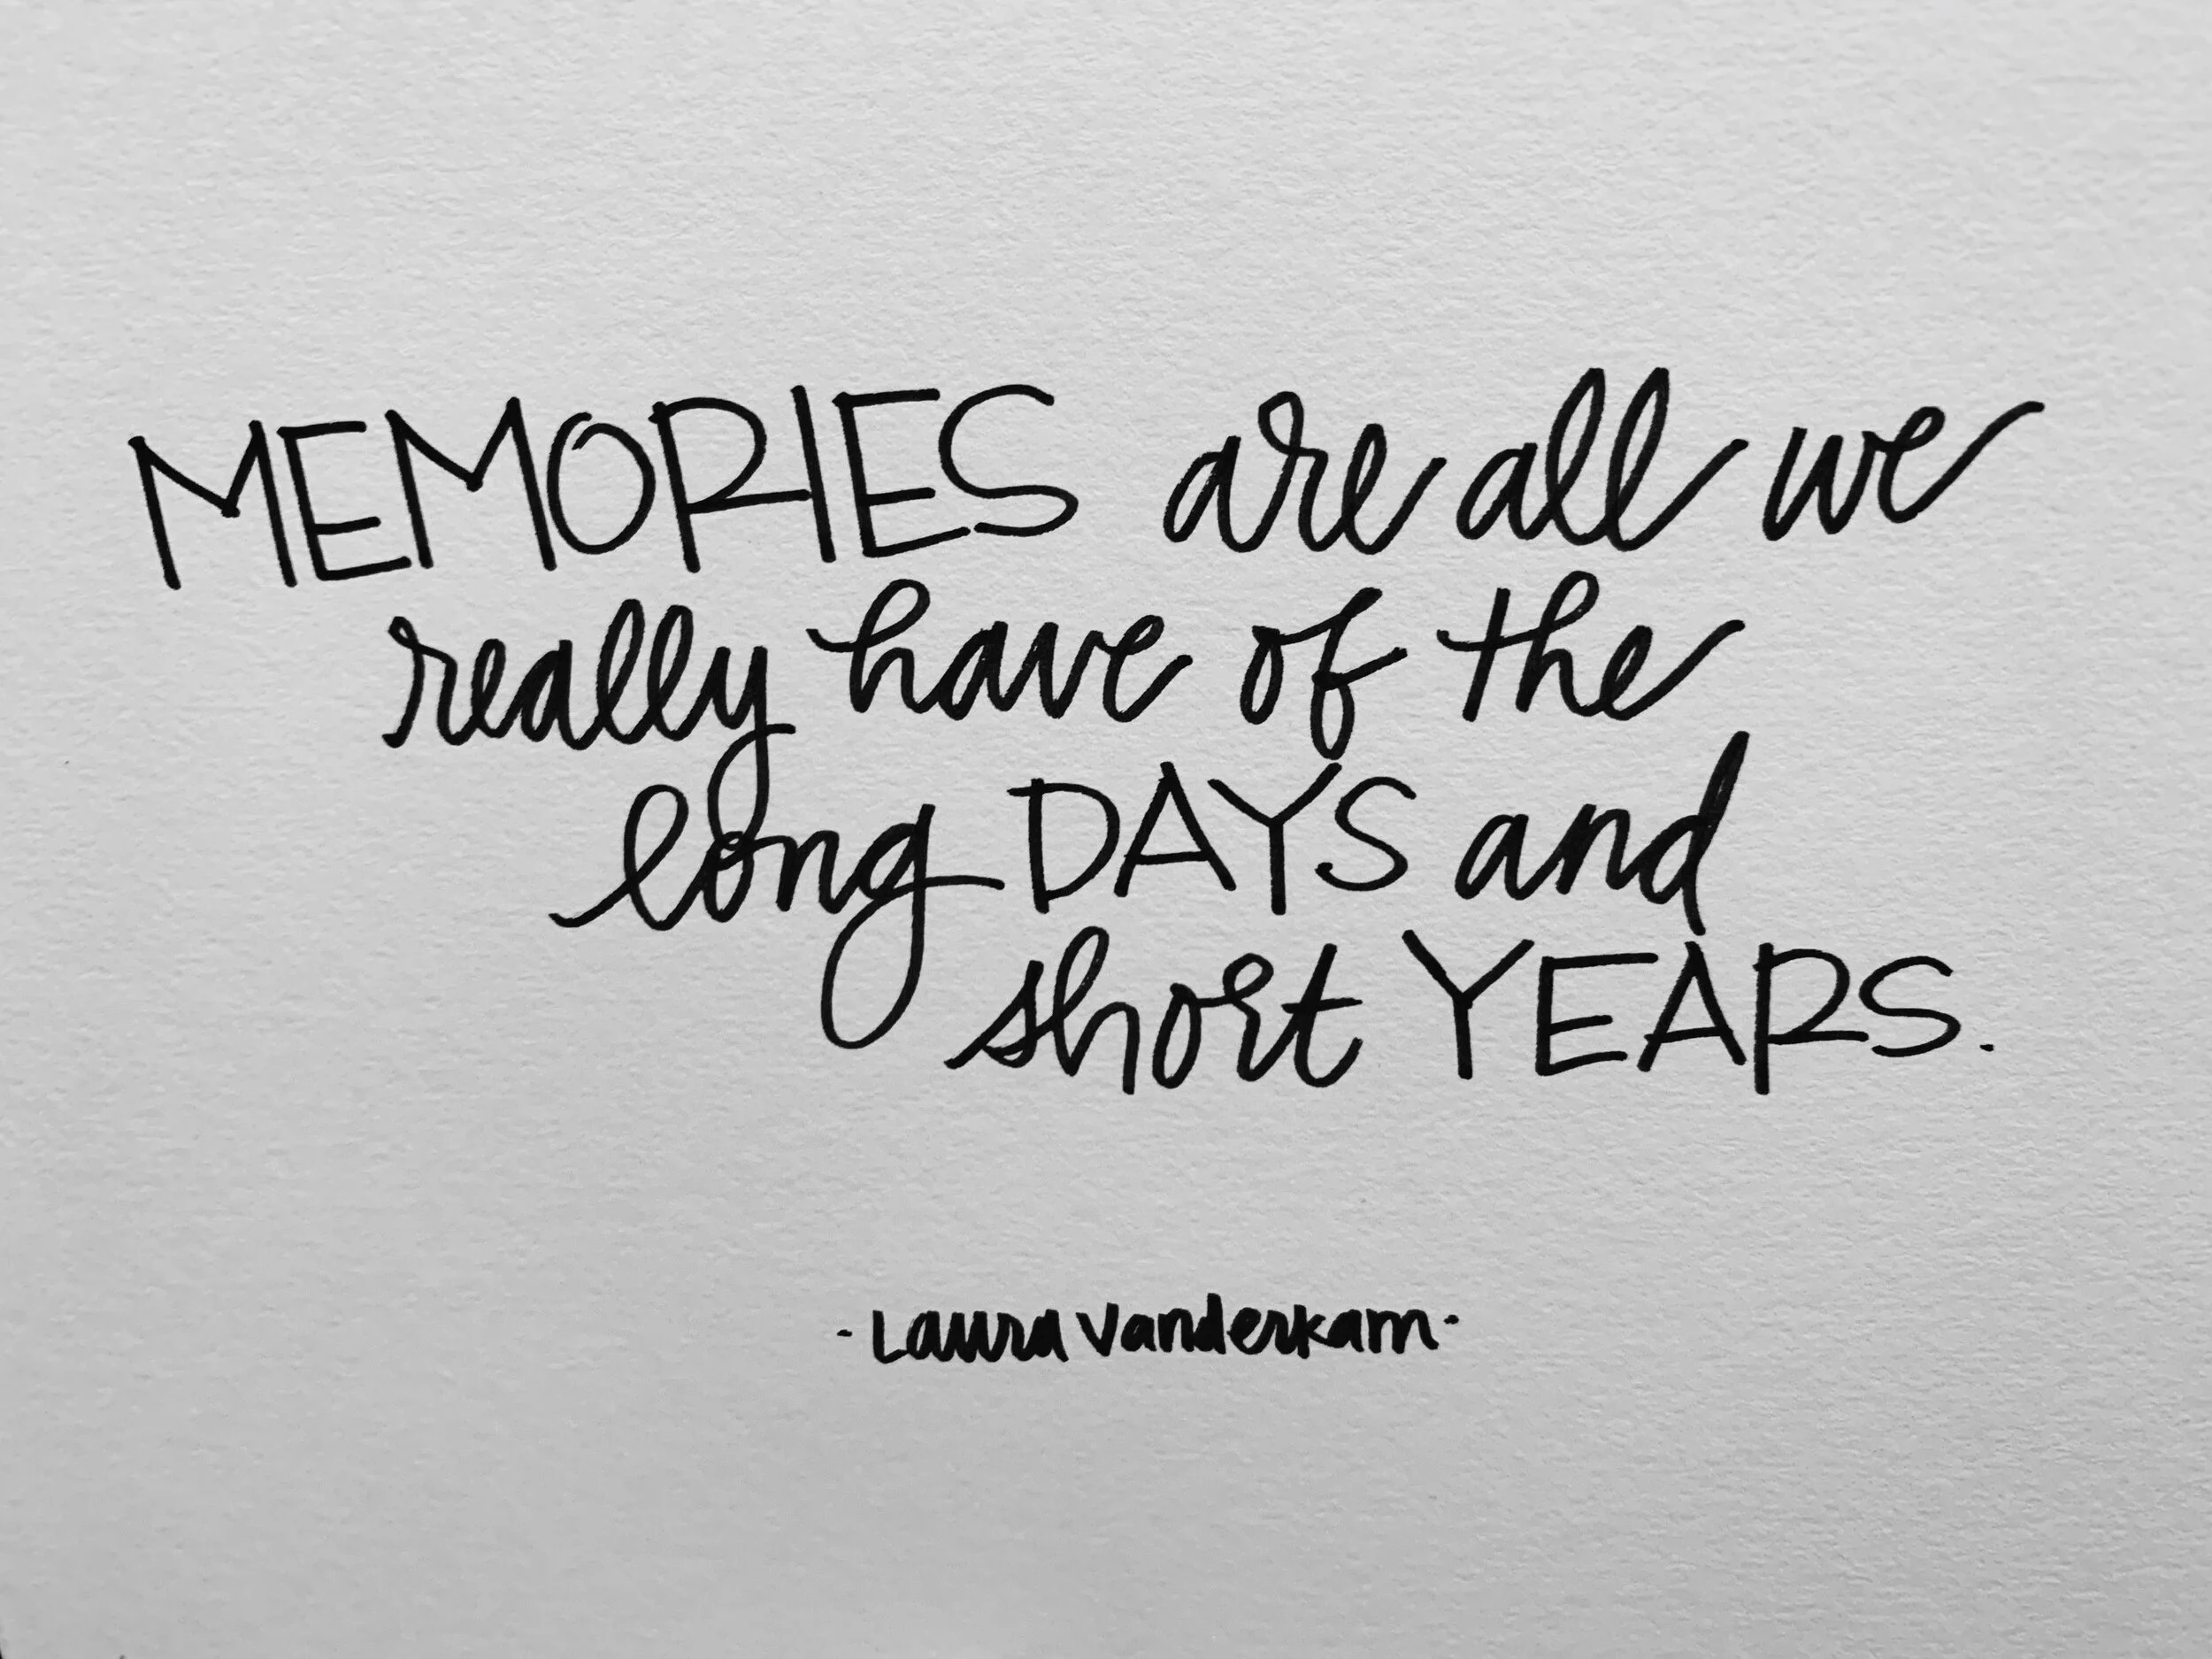 MEMORIES are all we
really have of the
long DAYS and
short YEARS.
-Laura Vanderkam-